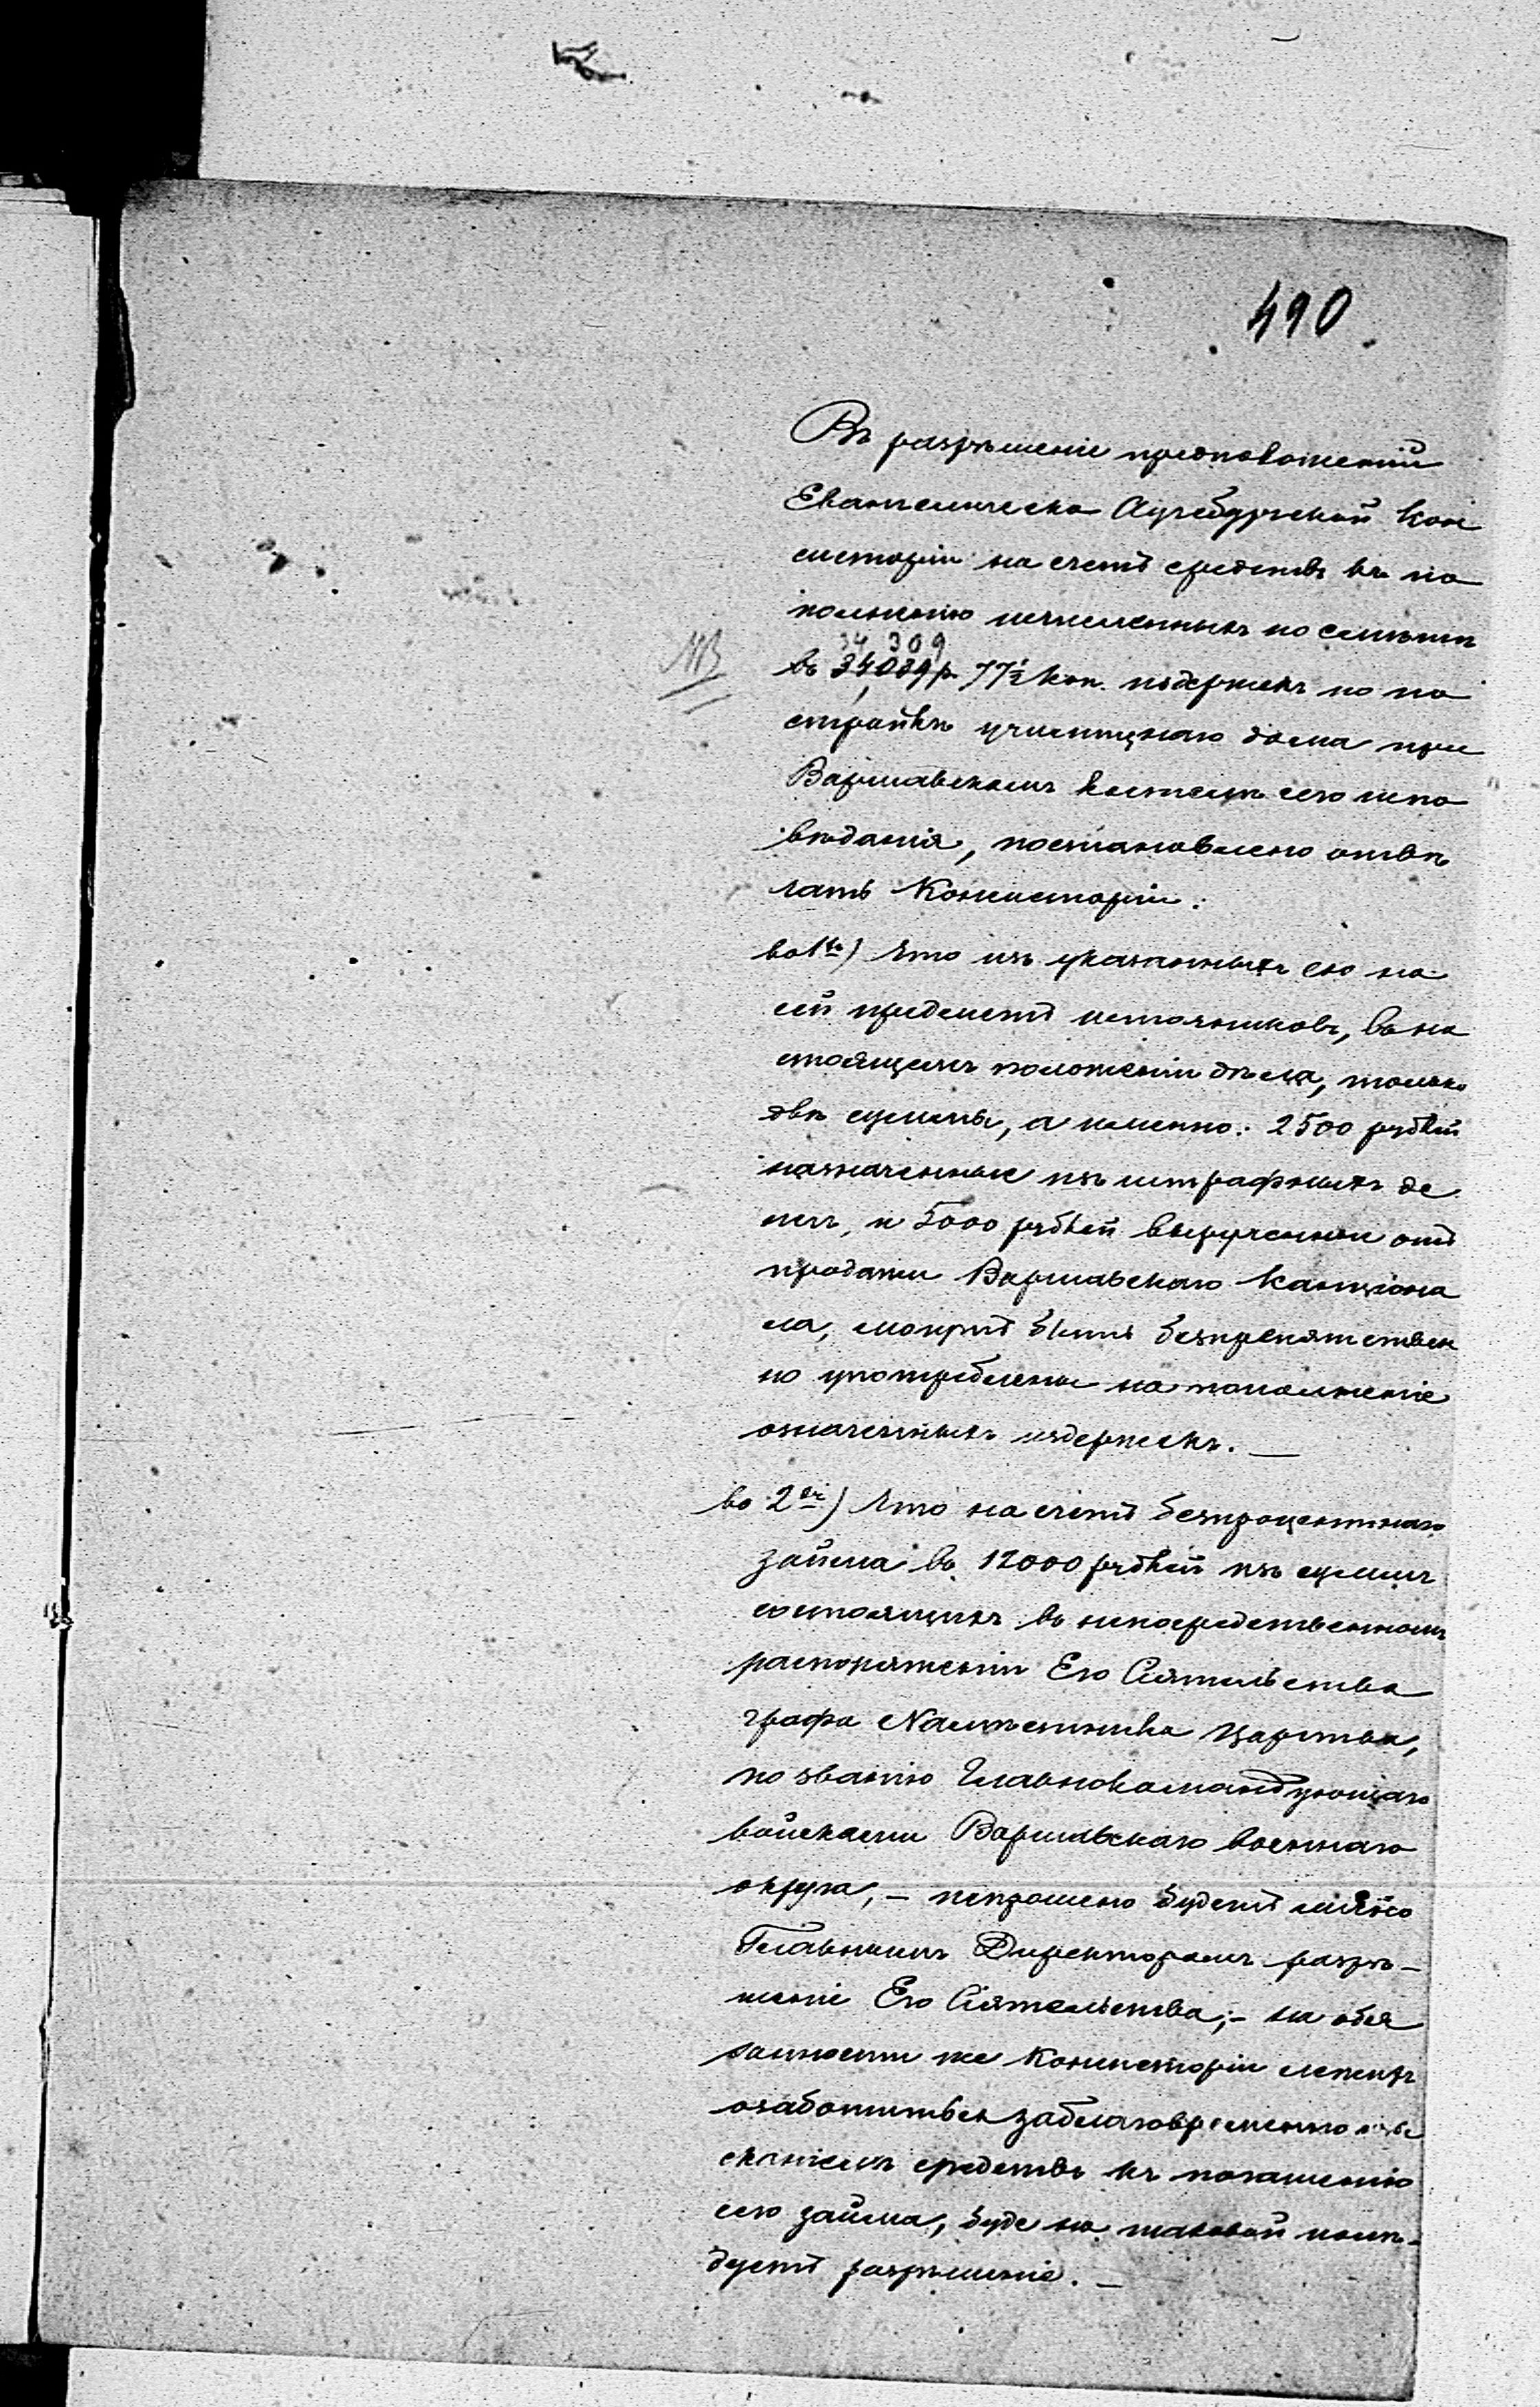 490
Въ разрѣшеніе предположеній
Евангелическо Аугсбургской Кон
систоріи на счетъ средствъ къ по
полненію исчисленныхъ по смѣтѣ
34 309
NB
въ 34,089 р. 77½ коп. издержекъ по по
стройкѣ училищнаго дома при
Варшавскомъ костелѣ сего испо
вѣданія, постановлено отвѣ
чать Консисторіи:
во 1хъ) Что изъ указанныхъ ею на
сей предметъ источниковъ, въ на
стоящемъ положеніи дѣла, только
двѣ суммы, а именно: 2500 рублей
назначенные изъ штрафныхъ де
негъ, и 5000 рублей вырученные отъ
продажи Варшавскаго Канціона
ла, могутъ быть безпрепятствен
но употреблены на пополненіе
означенныхъ издержекъ. —
во 2хъ) Что на счетъ безпроцентнаго
займа въ 12000 рублей изъ суммъ
состоящихъ въ непосредственномъ
распоряженіи Его Сіятельства
Графа Намѣстника Царства,
по званію Главнокомандующаго
войсками Варшавскаго военнаго
округа, — испрошено будетъ мною
Главнымъ Директоромъ разрѣ-
шеніе Его Сіятельства; — на обя
занности же Консисторіи лежитъ
озаботиться заблаговременно изы
сканіемъ средствъ къ погашенію
сего займа, буде на таковой послѣ-
дуетъ разрѣшеніе. —